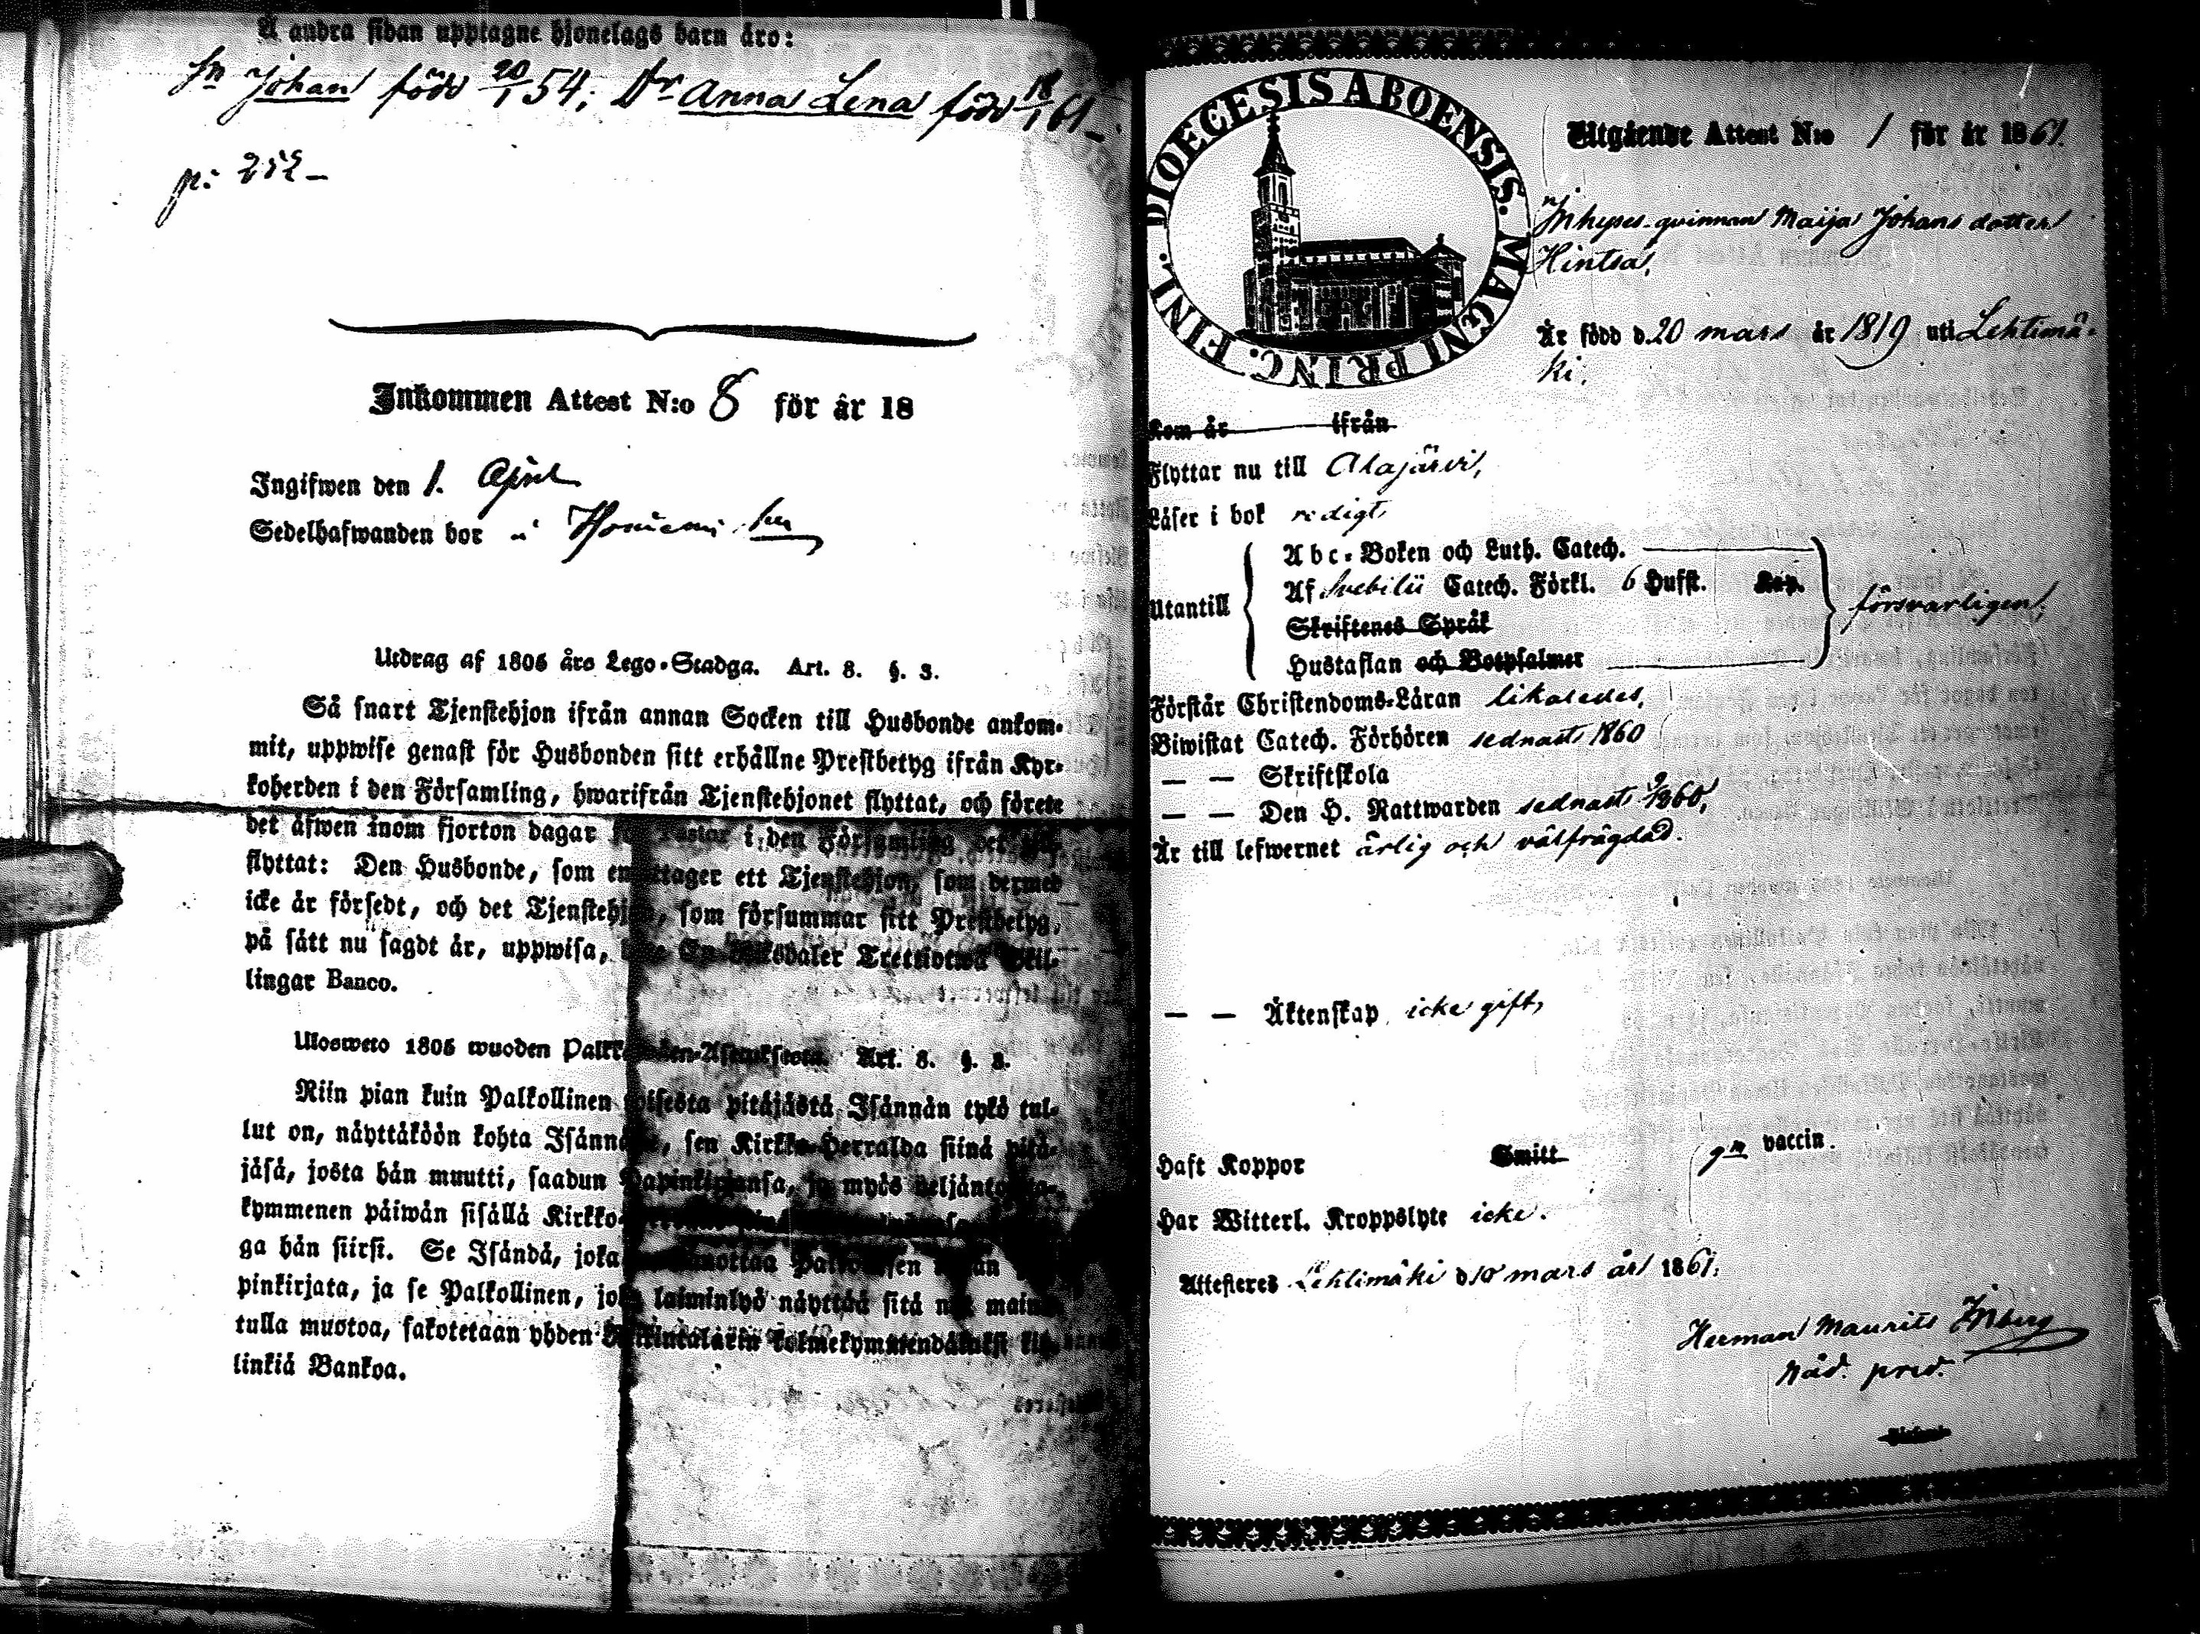 Å andra sidan upptagne hjonelags barn äro:
Sn Johan född 20/1 54; Dr Anna Lena född 18/1 61
p: 252
Inkommen Attest N:o 8 för år 18
Ingifwen den 1. April
Sedelhafwanden bor i
Utdrag af 1805 års Lego-Stadga. Art. 8. §. 3.
Så snart Tjenstehjon ifrån annan Socken till Husbonde ankom-
mit, uppwise genast för Husbonden sitt erhållne Prestbetyg ifrån Kyr-
koherden i den Församling, hwarifrån Tjenstehjonet flyttat, och förete
det äfwen inom fjorton dagar i den Församling
flyttat: Den Husbonde, som ett Tjenstehjon, som dermed
icke är försedt, och det Tjenstehjon, som försummar sitt Prestbetyg,
på sätt nu sagdt är, uppwisa, Trettiotwå Skil-
lingar Banco.
Ulosweto 1805 wuoden Art. 8. §. 3.
Niin pian kuin Palkollinen toisesta pitäjästä Isännän tykö tul-
lut on, näyttäköön kohta Isännälle, sen Kirkko-Herralda siinä pitä-
jäsä, josta hän muutti, saadun Papinkirjansa, ja myös neljäntoista-
kymmenen päiwän sisällä Kirkko-
ga hän siirsi. Se Isändä, joka
pinkirjata, ja se Palkollinen, joka laiminlyö näyttää sitä nyt mainit-
tulla muotoa, sakotetaan yhden Riikintalarin kolmekymmendäkaksi kil-
linkiä Bankoa.
DIOECESIS ABOENSIS. MAGNI PRINC. FINL.
Utgående Attest N:o 1 för år 1861.
Inhyses-qvinnan Maija Johans dotter
Hintsa,
Är född d. 20 mars år 1819 uti Lehtimä-
ki.
Kom år ifrån
Flyttar nu till Alajärvi,
Läser i bok redigt,
Abc-Boken och Luth. Catech.
Utantill Af Svebilii Catech. Förkl. 6 Hufst. Kap. försvarligen,
Skriftenes Språk
Hustaflan och Botpsalmer
Förstår Christendoms-Läran likaledes,
Biwistat Catech. Förhören sednast 1860
— — Skriftskola
— — Den H. Nattwarden sednast 1860,
Är till lefwernet ärlig och välfrägdad.
— — Äktenskap icke gift,
Haft Koppor Smitt gm vaccin.
Har Witterl. Kroppslyte icke.
Attesteres Lehtimäki d 10 mars år 1861.
Herman Maurits Inberg
Nåd. pred.